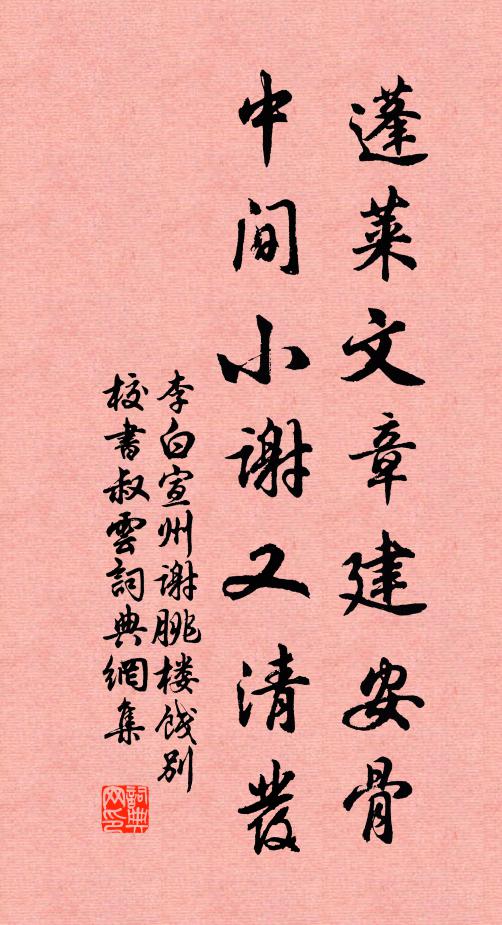 蓬萊文章建安骨
中间小谢又清發
李白宣州谢朓楼饯别
校書叔雲詞典網集
詞典网印